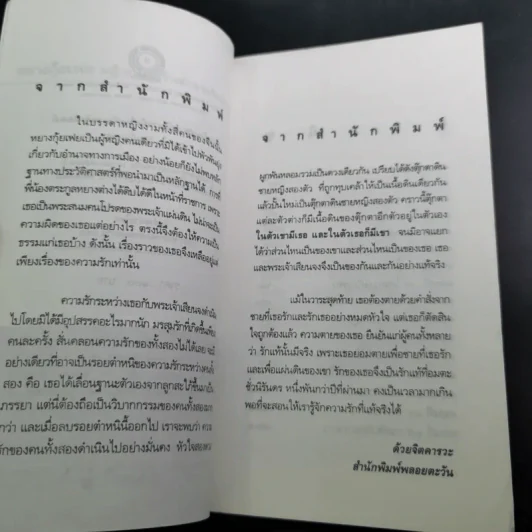 จากสำนักพิมพ์
ในบรรดาหญิงงามทั้งสี่คนของจีนนั้น
หยางกุ้ยเฟยเป็นผู้หญิงคนเดียวที่มิได้เข้าไปพัวพัน
เกี่ยวกับอำนาจทางการเมือง อย่างน้อยก็ยังไม่พบหลัก
ฐานทางประวัติศาสตร์ที่พอนำมาเป็นหลักฐานได้ การที่
พี่น้องตระกูลหยางต่างได้ดิบได้ดีในหน้าที่ราชการ
เธอเป็นพระสนมคนโปรดของพระเจ้าแผ่นดิน ไม่น่าจะเป็น
ความผิดของเธอแต่อย่างไร ตรงนี้จึงต้องให้ความเป็น
ธรรมแก่เธอบ้าง ดังนั้น เรื่องราวของเธอจึงเหลืออยู่
เพียงเรื่องของความรักเท่านั้น
ความรักระหว่างเธอกับพระเจ้าเสียนจงดำเนิน
ไปโดยมิได้มีอุปสรรคอะไรมากนัก มรสุมรักที่เกิดขึ้น
คนละครั้ง สั่นคลอนความรักของทั้งสองไม่ได้เลย
อย่างเดียวที่อาจเป็นรอยตำหนิของความรักระหว่าง
สอง คือ เธอได้เลื่อนฐานะตัวเองจากลูกสะใภ้ขึ้นมาเป็น
ภรรยา แต่นี่ต้องถือเป็นวิบากกรรมของคนทั้งสอง
กว่า และเมื่อลบรอยตำหนินี้ออกไป เราจะพบว่า ความ
รักของคนทั้งสองดำเนินไปอย่างมั่นคง หัวใจสอง
จากสำนักพิมพ์
ผูกพันหลอมรวมเป็นดวงเดียวกัน เปรียบได้ดังตุ๊กตาดิน
ชายหญิงสองตัว ที่ถูกทุบเคล้าให้เป็นเนื้อดินเดียวกัน
แล้วปั้นใหม่เป็นตุ๊กตาชายหญิงสองตัว คราวนี้ตุ๊กตา
แต่ละตัวต่างก็มีเนื้อดินของตุ๊กตาอีกตัวอยู่ในตัวเอง
ในตัวเขามีเธอ และในตัวเธอก็มีเขา จนมิอาจแยก
ได้ว่าส่วนไหนเป็นของเขาและส่วนไหนเป็นของเธอ เธอ
และพระเจ้าเสียนจงจึงเป็นของกันและกันอย่างแท้จริง
แม้ในวาระสุดท้าย เธอต้องตายด้วยคำสั่งจาก
ชายที่เธอรักและรักเธออย่างหมดหัวใจ แต่เธอก็ตัดสิน
ใจถูกต้องแล้ว ความตายของเธอ ยืนยันแก่ผู้คนทั้งหลาย
ว่า รักแท้นั้นมีจริง เพราะเธอยอมตายเพื่อชายที่เธอรัก
และเพื่อแผ่นดินของเขา รักของเธอจึงเป็นรักแท้ที่อมตะ
ชั่วนิรันดร หนึ่งพันกว่าปีที่ผ่านมา คงเป็นเวลามากเกิน
พอที่จะสอนให้เรารู้จักความรักที่แท้จริงได้
ด้วยจิตคารวะ
สำนักพิมพ์พลอยตะวัน